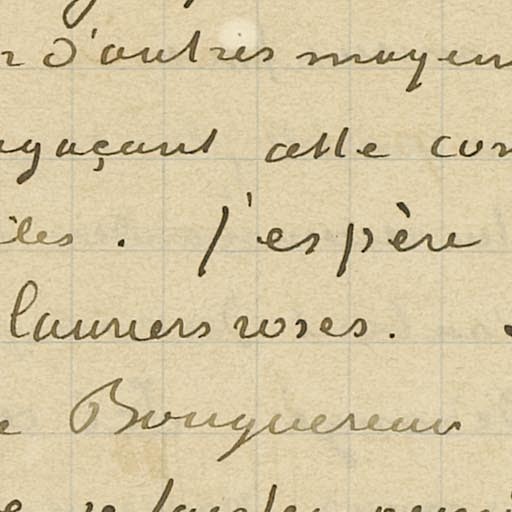 d'autres moyen
agaçant cette con
iles. J'espère
lauriers roses.
Bouguereau
se